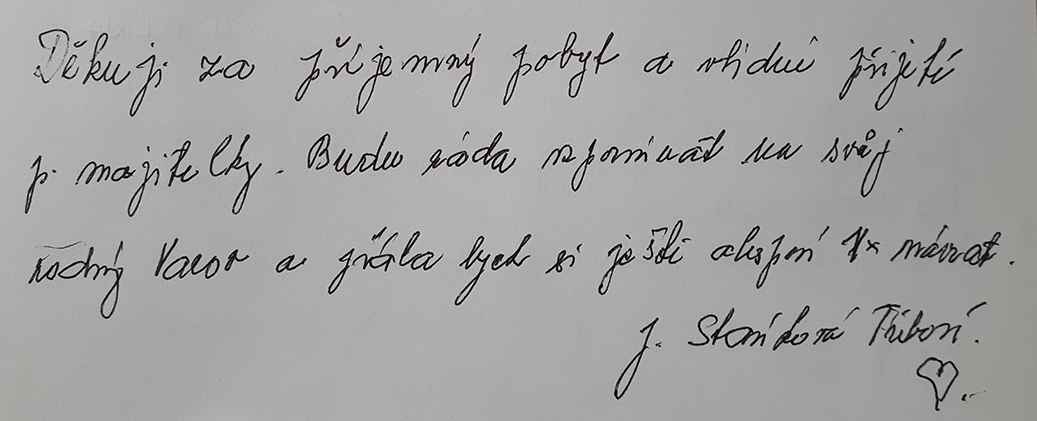 Děkuji za příjemný pobyt a vlídné přijetí
p. majitelky. Budu ráda vzpomínat na svůj
rodný Vacov a přála bych si ještě alespoň 1x návrat.
J. Staňková Třeboň.